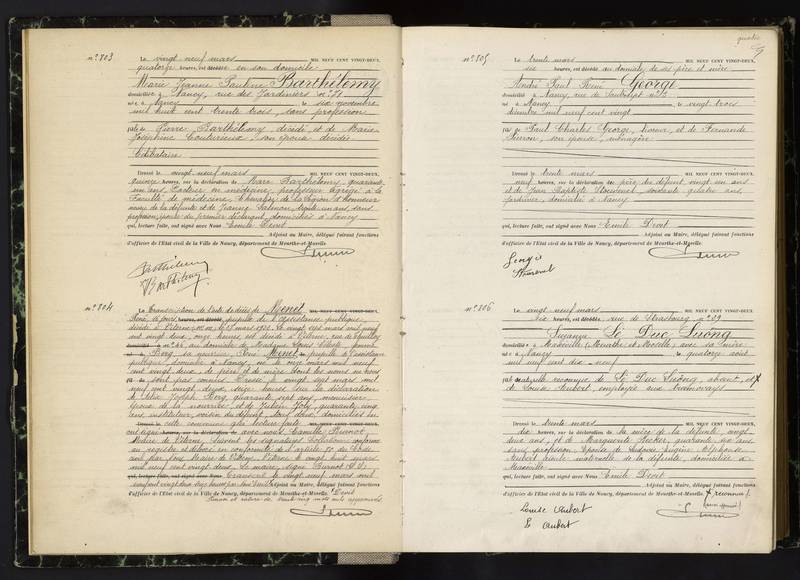 n° 803
Le vingt neuf mars MIL NEUF CENT VINGT-DEUX,
quatorze heures, est décédée en son domicile
Marie Jeanne Pauline Barthélemy
domiciliée à Nancy, rue des Jardiniers n° 51
née à Nancy le six novembre
mil huit cent trente trois, sans profession
fille de Pierre Barthélemy décédé et de Marie
Joséphine Couturieux, son épouse décédée
Célibataire
Dressé le vingt neuf mars MIL NEUF CENT VINGT-DEUX,
quinze heures, sur la déclaration de Marc Barthélemy, quarante
un ans, Docteur en médecine, professeur agrégé à la
Faculté de médecine, Chevalier de la Légion d'honneur
neveu de la défunte et de Jeanne Salmon, trente un ans, sans
profession, du premier déclarant, domiciliés à Nancy
qui, lecture faite, ont signé avec Nous Emile Droit
Adjoint au Maire, délégué faisant fonctions
d'officier de l'Etat civil de la Ville de Nancy, département de Meurthe-et-Moselle
Barthélemy
Barthélemy
n° 804
Le Transcription de l'acte de décès de Menet MIL NEUF CENT VINGT-DEUX,
René, jours, heures, est décédé, pupille de l'assistance publique
décédé à Viterne le mars 1922. Le vingt sept mars mil neuf
cent vingt deux, onze heures est décédé à Viterne, rue de
domicilié n° 46, au domicile de Madame Louis Céleste femme
Berg sa nourrice, René Menet pupille de l'assistance
publique, domicilié à Nancy, né le onze mars mil neuf
cent vingt deux, de père et de mère dont les noms ne nous
sont pas connus. Dressé le vingt sept mars mil
neuf cent vingt deux, seize heures sur la déclaration
de Félix Joseph Berg, quarante sept ans, menuisier
époux de la nourrice et de Julien Joly, quarante cinq
ans, instituteur, voisin du défunt, tous deux domiciliés en
Dressé le cette commune qui lecture faite MIL NEUF CENT VINGT-DEUX,
ont signé heures, sur la déclaration de avec nous Camille Burnot
Maire de Viterne, suivent les signatures Collationné conforme
au registre et délivré en conformité de l'article 80 du Code
civil par nous Maire de Viterne. Viterne le vingt huit mars
mil neuf cent vingt deux. Le maire, signé Burnot (L.S.)
qui, lecture faite, ont signé avec Nous Transcrit le vingt neuf mars mil
neuf cent vingt deux, onze heures par nous Emile Adjoint au Maire, délégué faisant fonctions
d'officier de l'Etat civil de la Ville de Nancy, département de Meurthe-et-Moselle Droit
n° 805
Le trente mars MIL NEUF CENT VINGT-DEUX,
six heures, est décédé au domicile de ses père et mère
André Paul René George
domicilié à Nancy, rue de n° 32
né à Nancy le vingt trois
décembre mil neuf cent vingt
fils de Paul Charles George, livreur, et de Fernande
Pierron, son épouse, ménagère
Dressé le trente mars MIL NEUF CENT VINGT-DEUX,
neuf heures, sur la déclaration du père du défunt vingt un ans
et de Jean Baptiste Thouvenel, soixante quatre ans,
jardinier, domiciliés à Nancy
qui, lecture faite, ont signé avec Nous Emile Droit
Adjoint au Maire, délégué faisant fonctions
d'officier de l'Etat civil de la Ville de Nancy, département de Meurthe-et-Moselle
George
Thouvenel
n° 806
Le vingt neuf mars MIL NEUF CENT VINGT-DEUX,
dix heures, est décédée, rue de Strasbourg n° 29
Suzanne Lê Duc Luong
domiciliée à Maxéville (Meurthe et Moselle), avec sa mère
née à Nancy le quatorze août
mil neuf cent dix - neuf
fille naturelle reconnue de Lê Duc Luong, absent, et
de Louise Aubert, employée aux tramways
Dressé le trente mars MIL NEUF CENT VINGT-DEUX,
dix heures, sur la déclaration de la mère de la défunte, vingt
deux ans, et de Marguerite Becker, quarante six ans
sans profession Epouse de Ludovic Eugène Alphonse
Aubert, tante maternelle de la défunte, domiciliées à
Maxéville
qui, lecture faite, ont signé avec Nous Emile Droit
Adjoint au Maire, délégué faisant fonctions
d'officier de l'Etat civil de la Ville de Nancy, département de Meurthe-et-Moselle
Louise Aubert
E Aubert